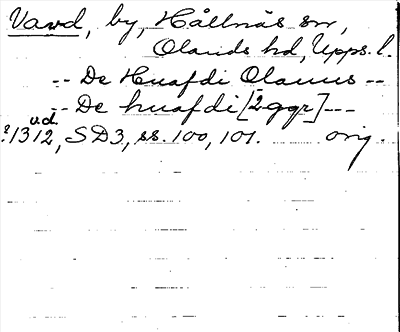 Vavd, by, Hållnäs sn,
Olands hd, Upps. l.
-- De Huafdi Olauus --
-- De huafdi [2 ggr] ---
u.d.
?1312, SD3, ss. 100, 101. orig.